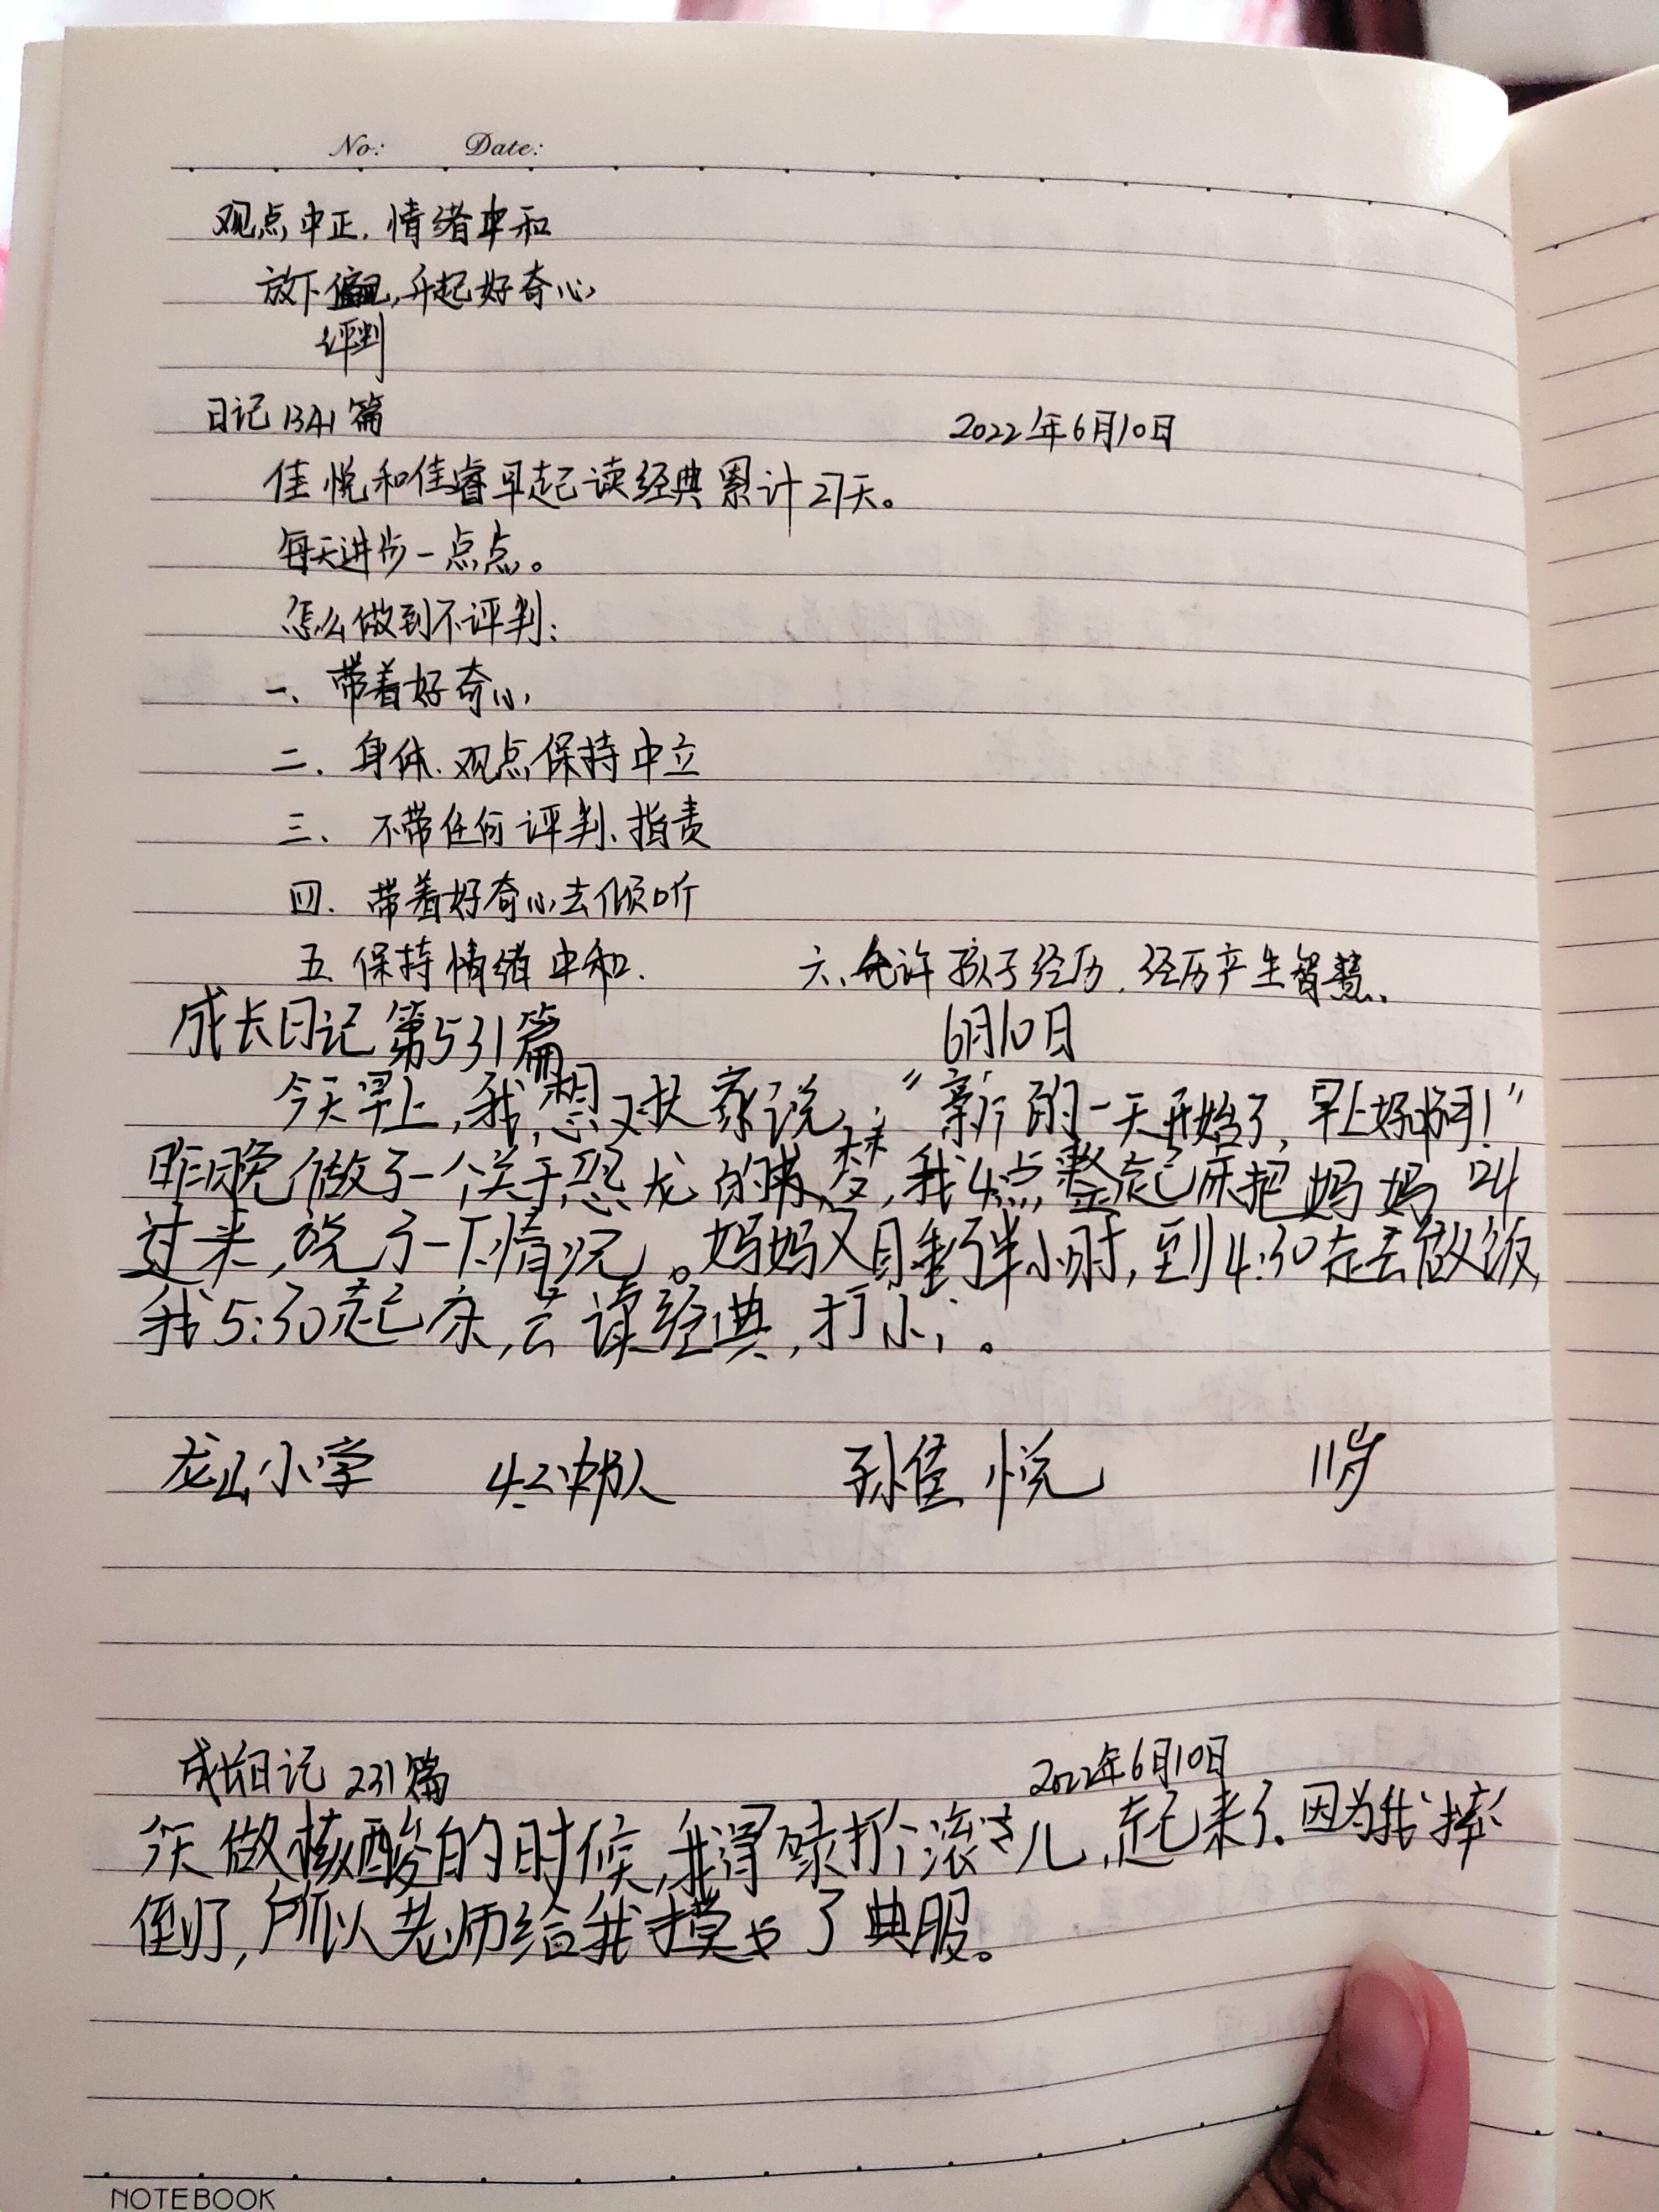 No: Date:
观点中正. 情绪中和
放下偏见,升起好奇心
评判
日记1341篇 2022年6月10日
佳悦和佳睿早起读经典累计27天。
每天进步一点点。
怎么做到不评判:
一、带着好奇心
二、身体、观点保持中立
三、不带任何评判、指责
四、带着好奇心去倾听
五、保持情绪中和. 六、允许孩子经历,经历产生智慧、
成长日记 第531篇 6月10日
今天早上,我想对大家说:“新的一天开始了,早上好啊!”
昨晚做了一个关于恐龙的梦,我4点整起床把妈妈叫
过来,说了一下情况。妈妈又目垂了半小时,到4:30起去做饭,
我5:30起床,去读经典,打卡。
龙山小学 4.2中队 孙佳悦 11岁
成长日记 231篇 2022年6月10日
今天做核酸的时候,我打个滚儿,起来了.因为我摔
倒了,所以老师给我摸了典服。
NOTEBOOK